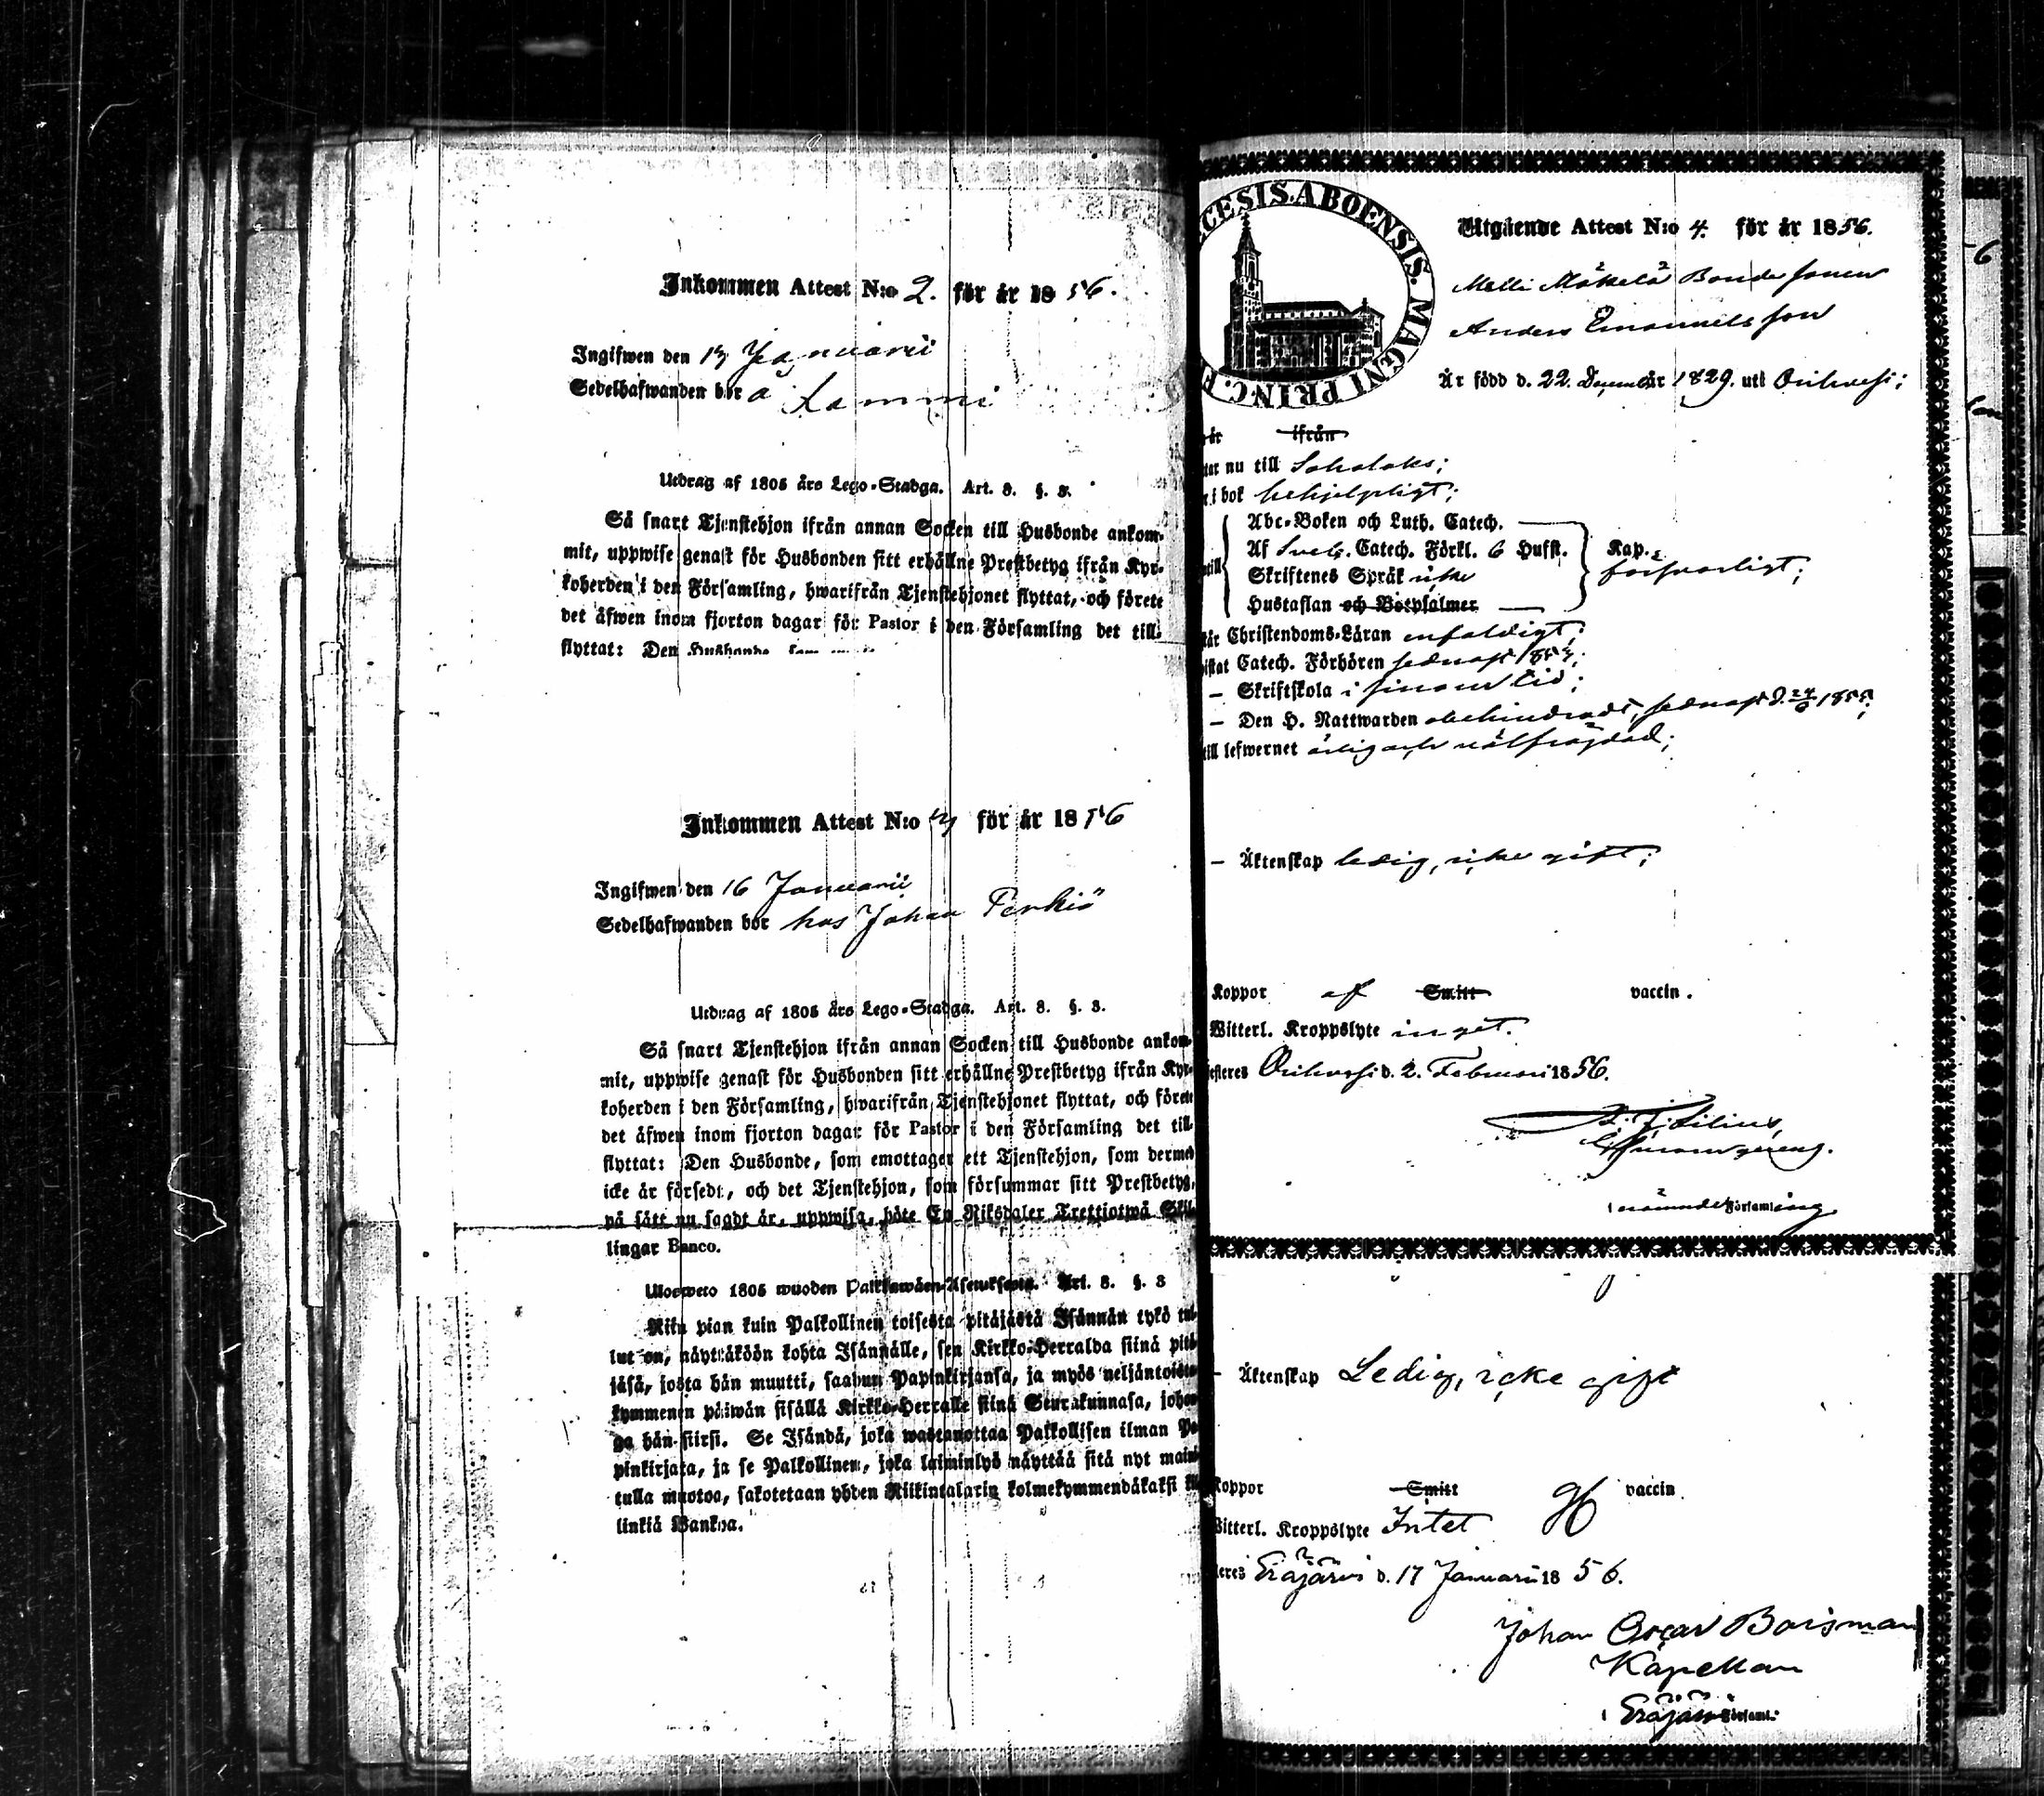 Inkommen Attest N:o 2. för år 1856.
Ingifwen den Januarii
Sedelhafwanden bor å Lammi
Utdrag af 1805 års Lego-Stadga. Art. 8. §. 3.
Så snart Tjenstehjon ifrån annan Socken till Husbonde ankom-
mit, uppwise genast för Husbonden sitt erhållne Prestbetyg ifrån Kyr-
koherden i den Församling, hwarifrån Tjenstehjonet flyttat, och förete
det äfwen inom fjorton dagar för Pastor i den Församling det till-
flyttat: Den Husbonde, som
Inkommen Attest N:o för år 1856
Ingifwen den 16 Januarii
Sedelhafwanden bor hos Johan Perkiö
Utdrag af 1805 års Lego-Stadga. Art. 8. §. 3.
Så snart Tjenstehjon ifrån annan Socken till Husbonde ankom-
mit, uppwise genast för Husbonden sitt erhållne Prestbetyg ifrån Kyr-
koherden i den Församling, hwarifrån Tjenstehjonet flyttat, och förete
det äfwen inom fjorton dagar för Pastor i den Församling det till-
flyttat: Den Husbonde, som emottager ett Tjenstehjon, som dermed
icke är försedt, och det Tjenstehjon, som försummar sitt Prestbetyg,
på sätt nu sagdt är, uppwisa, böte En Riksdaler Trettiotwå Skil-
lingar Banco.
Uloswето 1805 wuoden Palkkawäen-Asetuksesta. Art. 8. §. 3
Niin pian kuin Palkollinen toisesta pitäjästä Isännän tykö tul-
lut on, näyttäköön kohta Isännälle, sen Kirkko-Herralda siinä pitä-
jäsä, josta hän muutti, saadun Papinkirjansa, ja myös neljäntoista-
kymmenen päiwän sisällä Kirkko-Herralle siinä Seurakunnasa, johon-
ga hän siirsi. Se Isändä, joka wastanottaa Palkollisen ilman Pa-
pinkirjata, ja se Palkollinen, joka laiminlyö näyttää sitä nyt maini-
tulla muotoa, sakotetaan yhden Riikintalarin kolmekymmendäkaksi kil-
linkiä Bankoa.
CESIS. ABOENSIS. MAGNI PRINC. F
Utgående Attest N:o 4. för år 1856.
Melli Mäkelä Bonde sonen
Anders Emanuelsson
Är född d. 22. December 1829. uti Orihvesi;
är ifrån
nu till Sahalaks;
i bok behjelpligt;
Abc-Boken och Luth. Catech.
Af Sveb. Catech. Förkl. 6 Hufst. Kap.
Skriftenes Språk icke försvarligt;
Hustaflan och Botpsalmer
Christendoms-Läran enfaldigt;
Catech. Förhören sednast
– Skriftskola i sinom tid;
– Den H. Nattwarden obehindradt, sednast d. 24/6 1855;
till lefwernet ärlig och välfrägdad;
– Äktenskap ledig, icke gift;
Koppor af Smitt vaccin.
Witterl. Kroppslyte inget.
Orihvesi d. 2. Februari 1856.
nämnde Församling
– Äktenskap Ledig, icke gift
Koppor Smitt af vaccin
Witterl. Kroppslyte Intet
Eräjärvi d. 17 Januarii 1856.
Johan Oscar Boisman
Kapellan
i Eräjärvi Församl.